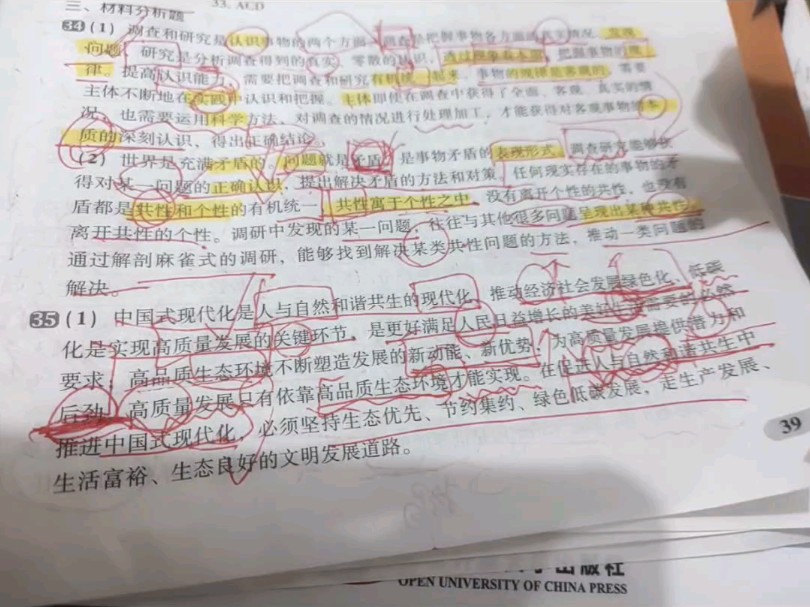 三、材料分析题
33. ACD
34 (1) 调查和研究是认识事物的两个方面。调查是把握事物各方面的真实情况、发现
问题，研究是分析调查得到的真实、零散的情况，透过现象看本质，把握事物的规
律。提高认识能力，需要把调查和研究有机统一起来。事物的规律是客观的，需要
主体不断地在实践中认识和把握。主体即使在调查中获得了全面、客观、真实的情
况，也需要运用科学方法，对调查的情况进行处理加工，才能获得对客观事物的本
质的深刻认识，得出正确结论。
(2) 世界是充满矛盾的，问题就是矛盾，是事物矛盾的表现形式。调查研究能够获
得对某一问题的正确认识，提出解决矛盾的方法和对策。任何现实存在的事物的矛
盾都是共性和个性的有机统一，共性寓于个性之中，没有离开个性的共性，也没有
离开共性的个性。调研中发现的某一问题，往往与其他很多问题呈现出某种共性，
通过解剖麻雀式的调研，能够找到解决某类共性问题的方法，推动一类问题的
解决。
35 (1) 中国式现代化是人与自然和谐共生的现代化。推动经济社会发展绿色化、低碳
化是实现高质量发展的关键环节，是更好满足人民日益增长的美好生活需要的必然
要求。高品质生态环境不断塑造发展的新动能、新优势，为高质量发展提供潜力和
后劲，高质量发展只有依靠高品质生态环境才能实现。在促进人与自然和谐共生中
推进中国式现代化，必须坚持生态优先、节约集约、绿色低碳发展，走生产发展、
生活富裕、生态良好的文明发展道路。
39
出版社
OPEN UNIVERSITY OF CHINA PRESS